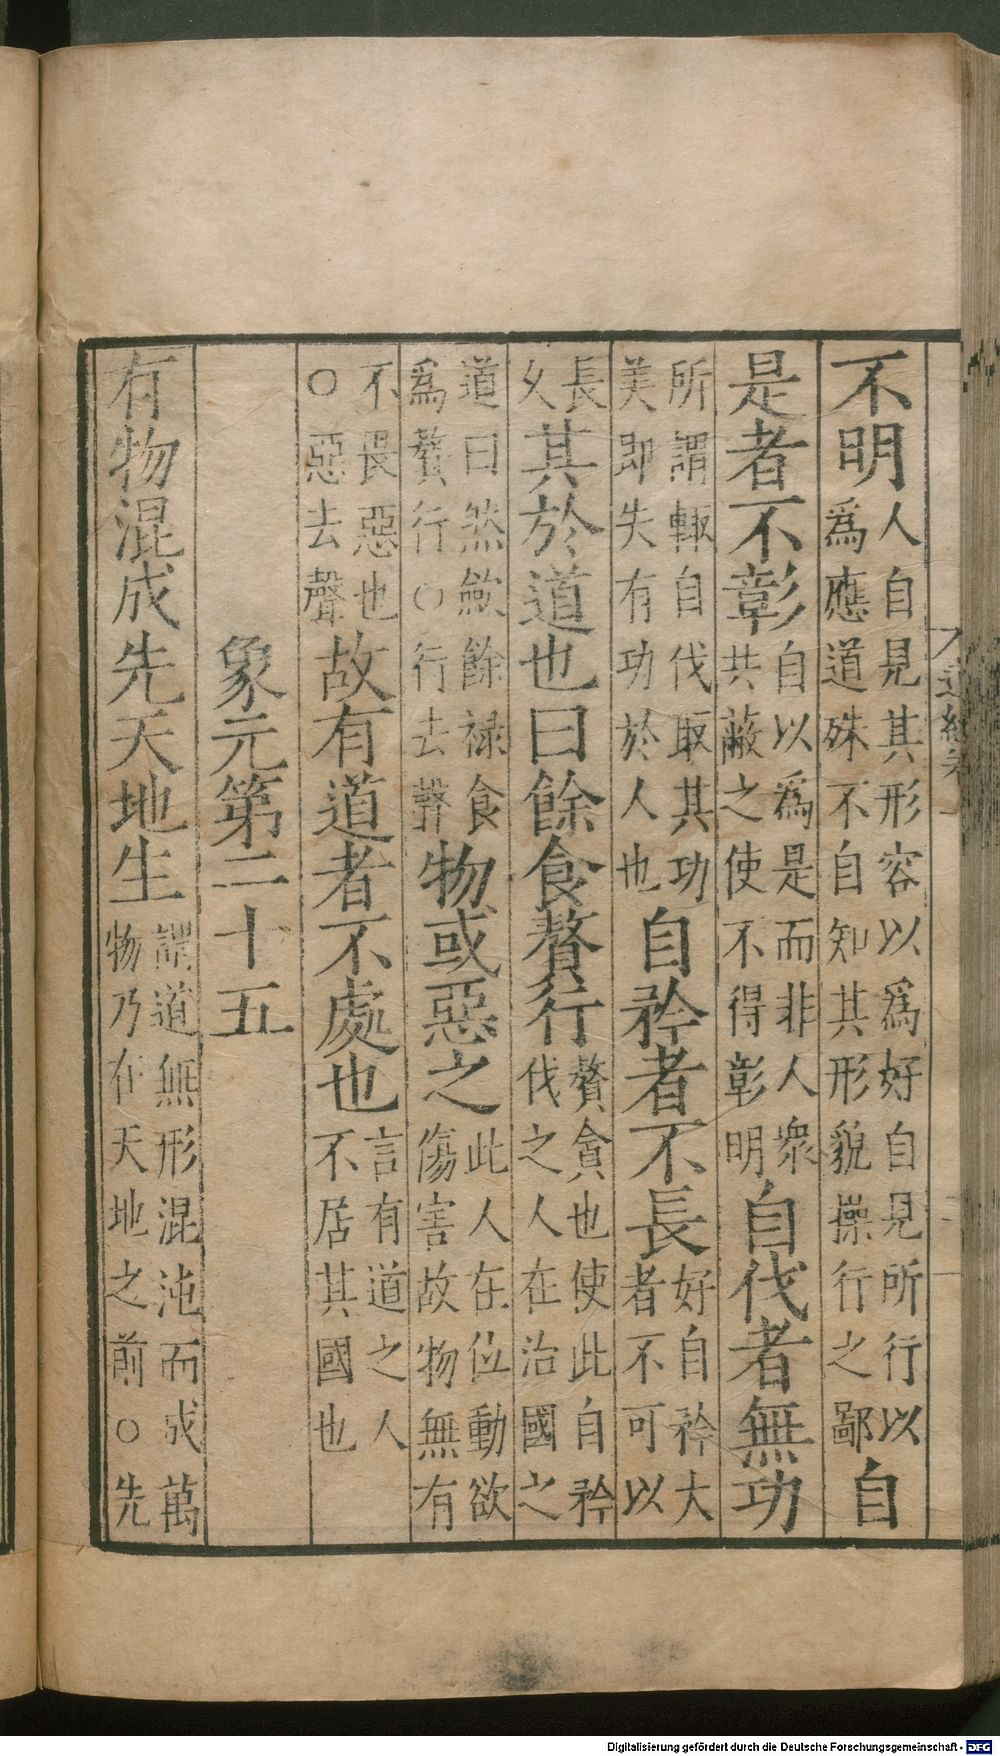 不明人自見其形容以爲好自見所行以爲應道殊不自知其形貌操行之鄙自
是者不彰自以爲是而非人衆共蔽之使不得彰明自伐者無功
所謂輙自伐取其功美即失有功於人也自矜者不長好自矜大者不可以
長久其於道也曰餘食贅行贅貪也使此自矜伐之人在治國之
道曰然斂餘祿食爲贅行○行去聲物或惡之此人在位動欲傷害故物無有
不畏惡也○惡去聲故有道者不處也言有道之人不居其國也
象元第二十五
有物混成先天地生謂道無形混沌而成萬物乃在天地之前○先
Digitalisierung gefördert durch die Deutsche Forschungsgemeinschaft - DFG